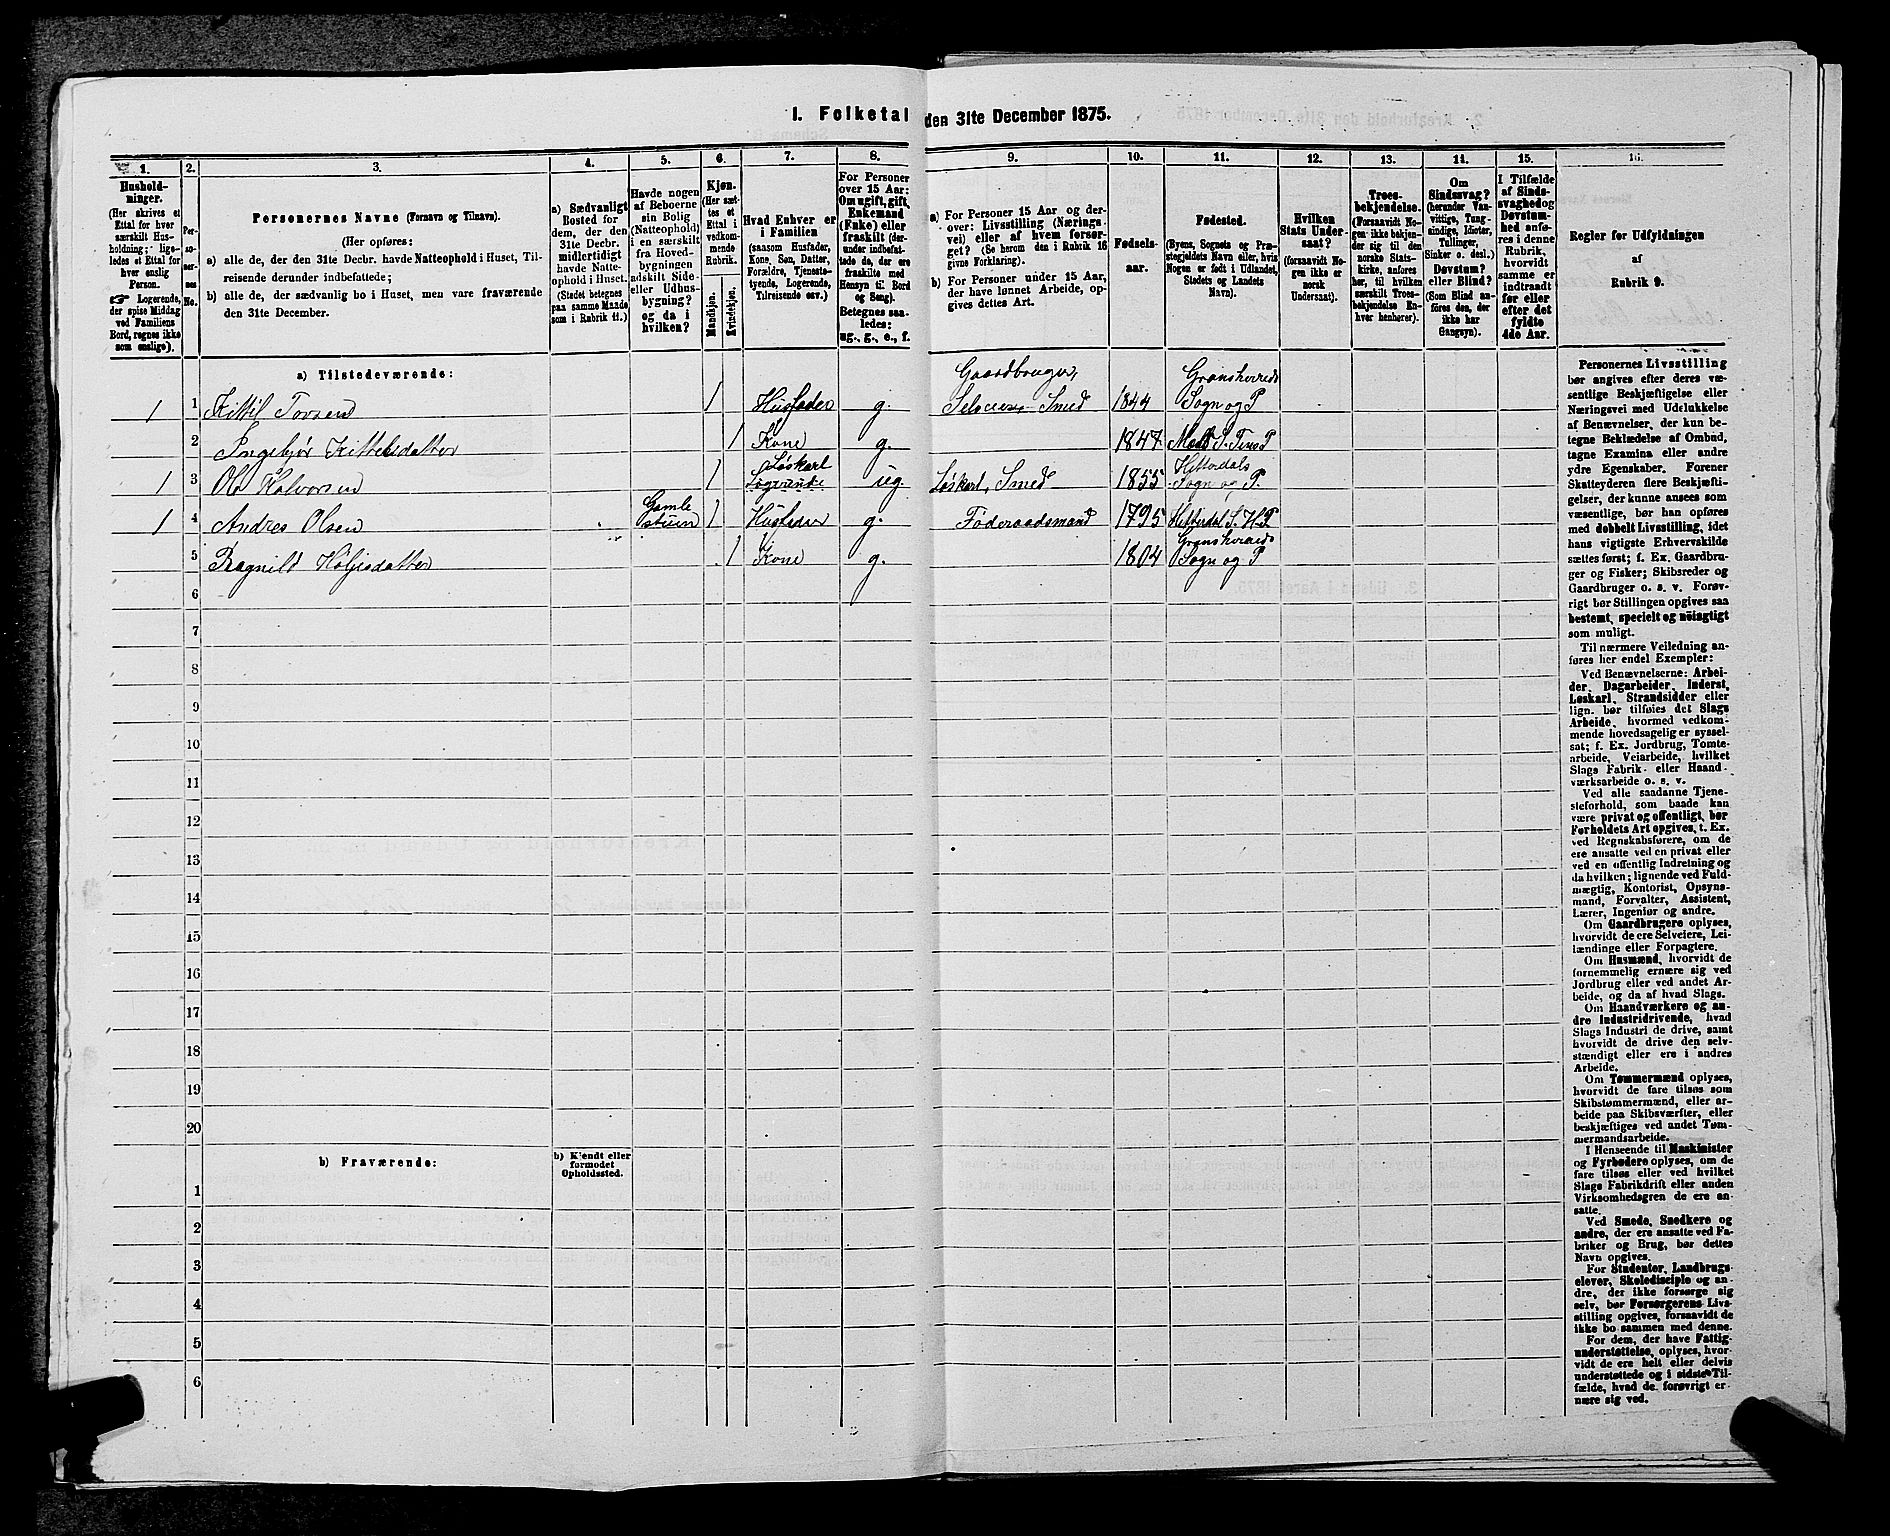 I. Folketal den 31te December 1875.
1. 2. 3. 4. 5. 6. 7. 8. 9. 10. 11. 12. 13. 14. 15. 16.
Hushold-
ninger.
(Her skrives et
Ettal for hver
særskilt Hus-
holdning; lige-
ledes et Ettal for
hver enslig
Person.
☞ Logerende,
der spise Middag
ved Familiens
Bord, regnes ikke
som enslige).
Per-
so-
ner-
nes
No.
Personernes Navne (Fornavn og Tilnavn).
(Her opføres:
a) alle de, der den 31te Decbr. havde Natteophold i Huset, Til-
reisende derunder indbefattede;
b) alle de, der sædvanlig bo i Huset, men vare fraværende
den 31te December.
a) Sædvanligt
Bosted for
dem, der den
31te Decbr.
midlertidigt
havde Natte-
ophold i Huset.
(Stedet betegnes
paa samme Maade
som i Rubrik 11.)
Havde nogen
af Beboerne
sin Bolig
(Natteophold)
i en særskilt
fra Hoved-
bygningen
adskilt Side-
eller Udhus-
bygning?
og da i
hvilken?
Kjøn.
(Her sæt-
tes et
Ettal i
vedkom-
mende
Rubrik.
Mandkjøn.
Kvindekjøn.
Hvad Enhver er
i Familien
(saasom Husfader,
Kone, Søn, Datter,
Forældre, Tjeneste-
tyende, Logerende,
Tilreisende osv.)
For Personer
over 15 Aar:
Om ugift, gift,
Enkemand
(Enke) eller
fraskilt (der-
under indbefat-
tede de, der ere
fraskilte med
Hensyn til Bord
og Seng).
Betegnes saa-
ledes:
ug., g., e., f.
a) For Personer 15 Aar og der-
over: Livsstilling (Nærings-
vei) eller af hvem forsør-
get? (Se herom den i Rubrik 16
givne Forklaring).
b) For Personer under 15 Aar,
der have lønnet Arbeide, op-
gives dettes Art.
Fødsels-
aar.
Fødested.
(Byens, Sognets og Præ-
stegjeldets Navn eller, hvis
Nogen er født i Udlandet,
Stedets og Landets
Navn).
Hvilken
Stats Under-
saat?
(forsaavidt No-
gen ikke er
norsk
Undersaat).
Troes-
bekjendelse.
(Forsaavidt No-
gen ikke bekjen-
der sig til den
norske Stats-
kirke, anføres
her, til hvilken
særskilt Troes-
bekjendelse En-
hver henhører).
Om
Sindssvag?
(herunder Van-
vittige, Tung-
sindige, Idioter,
Tullinger,
Sinker o. desl.)
Døvstum?
eller Blind?
(Som Blind an-
føres den, der
ikke har
Gangsyn).
I Tilfælde
af Sinds-
svaghed og
Døvstum-
hed anfø-
res i denne
Rubrik,
hvorvidt
samme er
indtraadt
før eller
efter det
fyldte
4de Aar.
Regler for Udfyldningen
af
Rubrik 9.
a) Tilstedeværende:
1 1 Kittil Torsen 1 Husfader g. Gaardbruger, Selveier, Smed 1844 Gransherreds Sogn og P
2 Ingebjør Kittelsdatter 1 Kone g. 1847 S. Tins P
1 3 Ole Halvorsen 1 Løskarl Logerende ug Løskarl, Smed 1855 Hitterdals Sogn og P.
1 4 Andres Olsen Gamle stuen 1 Husfader g. Føderaadsmand 1795 Hitterdal S. H.P
5 Ragnild Holjesdatter 1 Kone g. 1804 Gransherreds Sogn og P
6
7
8
9
10
11
12
13
14
15
16
17
18
19
20
b) Fraværende:
b) Kjendt eller
formodet
Opholdssted.
1
2
3
4
5
6
Personernes Livsstilling
bør angives efter deres væ-
sentlige Beskjæftigelse eller
Næringsvei med Udelukkelse
af Benævnelser, der kun be-
tegne Beklædelse af Ombud,
tagne Examina eller andre
ydre Egenskaber. Forener
Skatteyderen flere Beskjæfti-
gelser, der kunne ansees som
væsentlige, bør han opføres
med dobbelt Livsstilling, idet
hans vigtigste Erhvervskilde
sættes først; f. Ex. Gaardbru-
ger og Fisker; Skibsreder og
Gaardbruger o. s. v. Forøv-
rigt bør Stillingen opgives saa
bestemt, specielt og nöiagtigt
som muligt.
Til nærmere Veiledning an-
føres her endel Exempler:
Ved Benævnelserne: Arbei-
der, Dagarbeider, Inderst,
Løskarl, Strandsidder eller
lign. bør tilføies det Slags
Arbeide, hvormed vedkom-
mende hovedsagelig er syssel-
sat; f. Ex. Jordbrug, Tomte-
arbeide, Veiarbeide, hvilket
Slags Fabrik- eller Haand-
værksarbeide o. s. v.
Ved alle saadanne Tjene-
steforhold, som baade kan
være privat og offentligt, bør
Forholdets Art opgives, t. Ex.
ved Regnskabsførere, om de
ere ansatte ved en privat eller
ved en offentlig Indretning og
da hvilken; lignende ved Fuld-
mægtig, Kontorist, Opsyns-
mand, Forvalter, Assistent,
Lærer, Ingeniør og andre.
Om Gaardbrugere oplyses,
hvorvidt de ere Selveiere, Lei-
lændinge eller Forpagtere.
Om Husmænd, hvorvidt de
fornemmelig ernære sig ved
Jordbrug eller ved andet Ar-
beide, og da af hvad Slags.
Om Haandværkere og an-
dre Industridrivende, hvad
Slags Industri de drive, samt
hvorvidt de drive den selv-
stændigt eller ere i andres
Arbeide.
Om Tømmermænd oplyses,
hvorvidt de fare tilsøs som
Skibstømmermænd, eller ar-
beide paa Skibsværfter, eller
beskjæftiges ved andet Tøm-
mermandsarbeide.
I Henseende til Maskinister
og Fyrbødere oplyses, om de
fare tilsøs eller ved hvilket
Slags Fabrikdrift eller anden
Virksomhedsgren de ere an-
satte.
Ved Smede, Snedkere og
andre, der ere ansatte ved Fa-
briker og Brug, bør dettes
Navn opgives.
For Studenter, Landbrugs-
elever, Skoledisciple og an-
dre, der ikke forsørge sig
selv, bør Forsørgerens Livs-
stilling opgives, forsaavidt de
ikke bo sammen med denne.
For dem, der have Fattig-
understøttelse, oplyses, hvor-
vidt de ere helt eller delvis
understøttede og i sidste Til-
fælde, hvad de forøvrigt er-
nære sig ved.